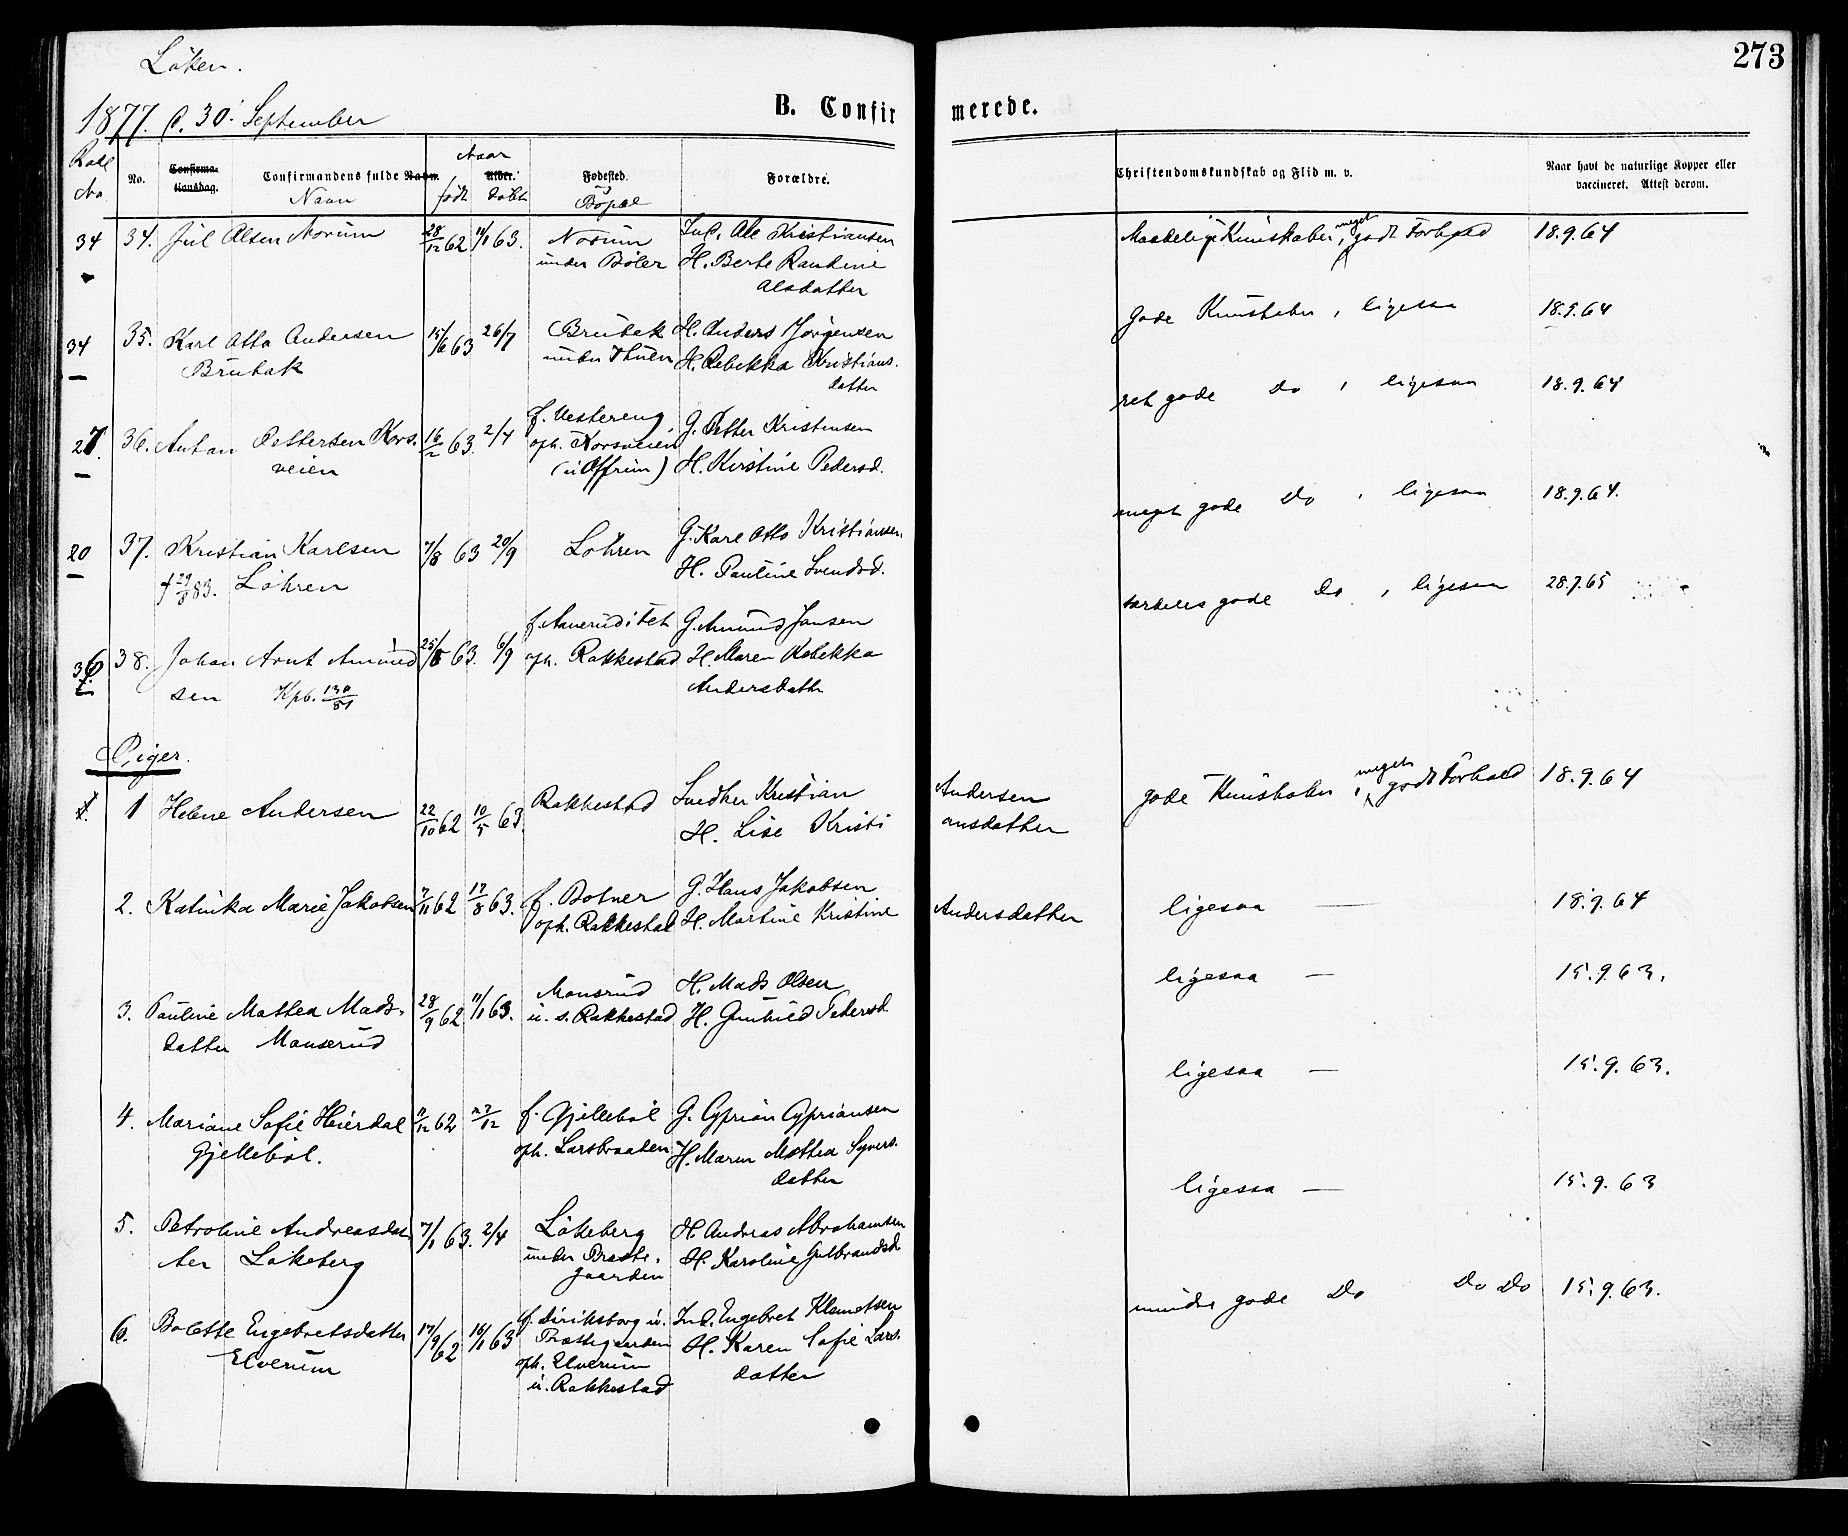 Löken.
273
1877. d. 30' September
B. Confir
merede.
Rode No
No.
Confirma-
tionsdag.
Confirmandens fulde Navn.
Navn
Naar
Alder.
født
døbt
Fødested.
Bopæl
Forældre.
Christendomskundskab og Flid m. v.
Naar havt de naturlige Kopper eller
vaccineret. Attest derom.
34 34. Jul Olsen Norum 28/12 62 11/1 63. Norum Ole Kristiansen
under Böler H. Berte Randine
Olsdatter
Maadelige Kunskaber, meget godt Forhold 18.9.64
34 35. Karl Otto Andersen 15/6 63 26/7 Brubak H. Anders Jörgensen
Brubak under Thuen H. Rebekka Kristians.
datter
gode Kunskaber, ligesaa 18.9.64
27. 36. Anton Pettersen Kors. 16/2 63 2/4 f. Vestereng, G. Petter Kristensen
veien oph. Korsveien H. Kirstine Pedersd.
(u Offrim)
ret gode Do, ligesaa 18.9.64
20 37. Kristian Karlsen 7/8 63 20/9 Lohren G. Karl Otto Kristiansen.
† 29/8 83. Löhren H. Pauline Svendsd.
meget gode Do, ligesaa 18.9.64.
36 38. Johan Arnt Amund 25/8 63. 6/9 G. Amund Jansen
sen Kpb. 130/81 oph. Rakkestad H. Maren Rebekka
Andersdatter
særdeles gode Do, ligesaa 28.9.65
Piger.
1 Helene Andersen 22/10 62 10/5 63. Rakkestad Kristian Andersen
H. Lise Kristi ansdatter
gode Kunskaber, meget godt Forhold 18.9.64
2. Katinka Marie Jakobsen 7/11 62 17/8 63. f. Botner G. Hans Jakobsen
oph. Rakkestad H. Martine Kristine Andersdatter
ligesaa — 18.9.64
3. Pauline Mathea Mads- 28/9 62 11/1 63. Monsrud H. Mads Olsen
datter Monserud u. s. Rakkestad H. Gunhild Pedersd.
ligesaa — 15.9.63.
4. Mariane Sofie Heierdal 11/12 62 27/12 f. Gjelleböl G. Cyprian Cypriansen
Gjelleböl. oph. Larsbraaten H. Maren Mathea Syvers.
datter
ligesaa — 15.9.63.
5. Petroline Andreasdat 7/1 63. 2/4 Lökeberg H. Andreas Abrahamsen
ter Lökeberg under Præste. H. Karoline Gulbrandsd.
gaarden
ligesaa — 15.9.63
6. Bolette Engebretsdatter 17/9 62 16/1 63 f. Diriksborg u. Ind. Engebret Klemetsen
Elverum Præstegaarden H. Karen Sofie Lars.
oph. Elverum datter
u. Rakkestad
mindre gode Do Do Do 15.9.63.